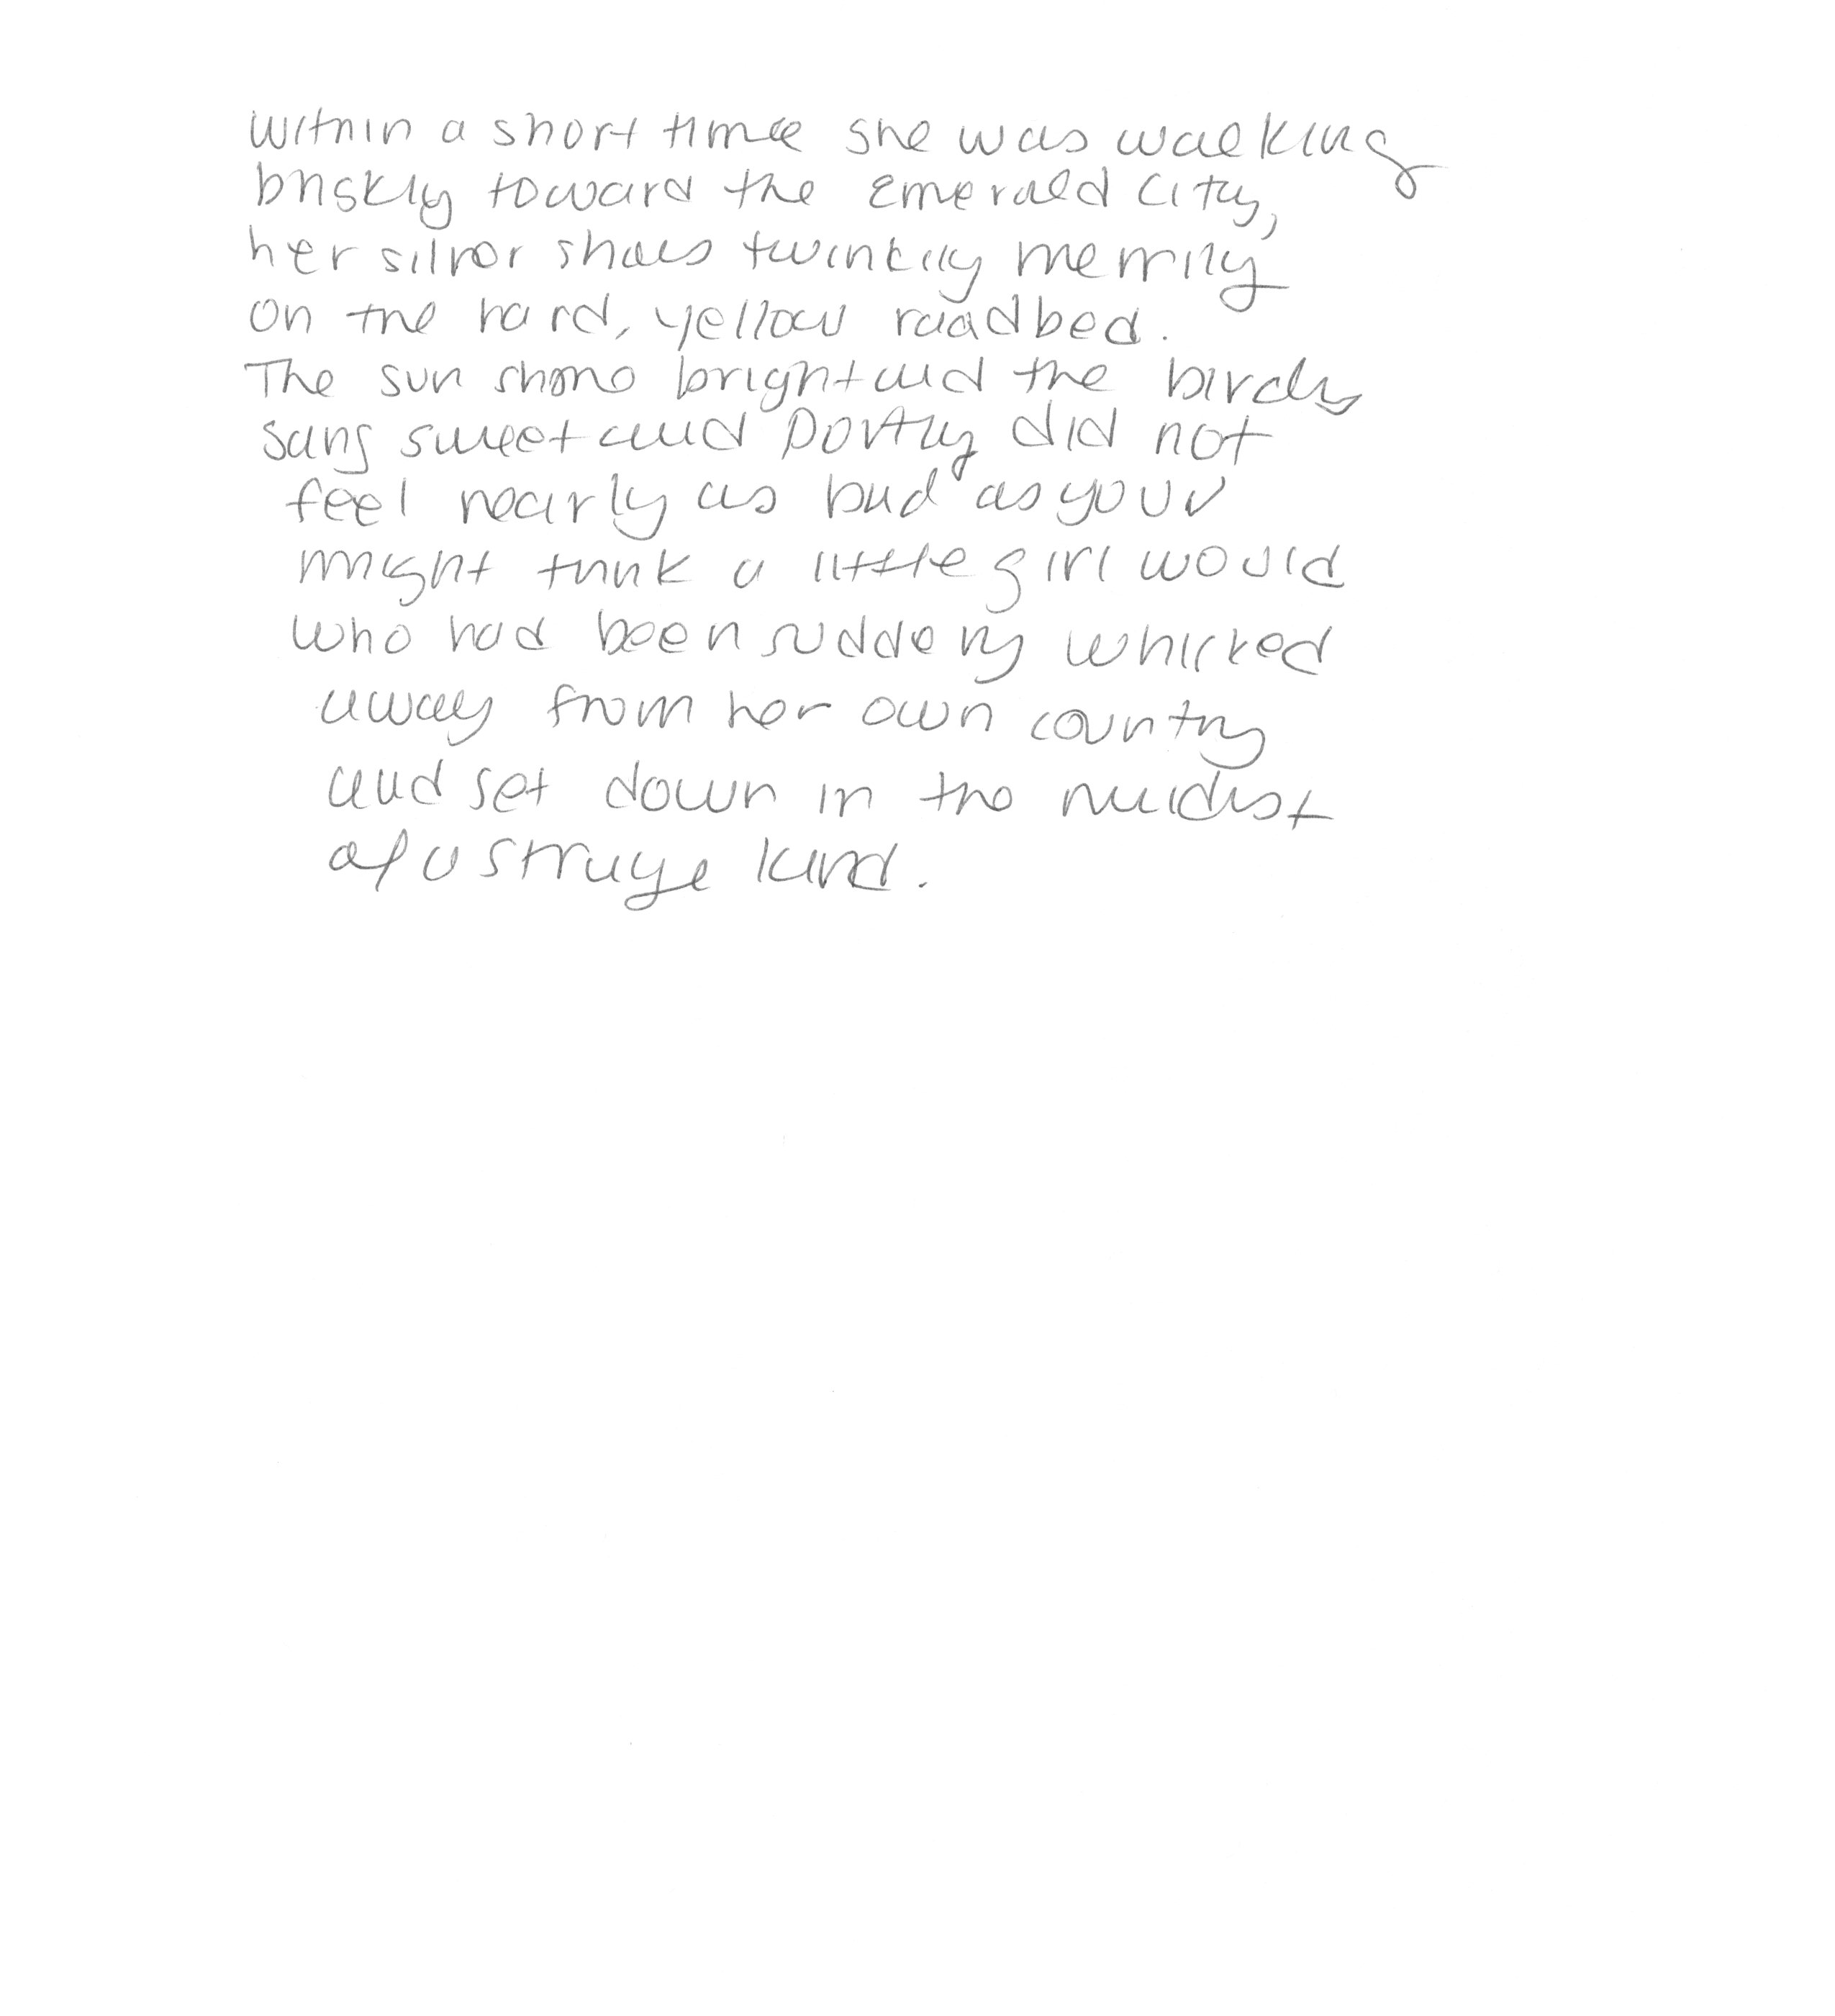 Within a short time she was walking
briskly toward the Emerald City,
her silver shoes twinkly merrily
on the hard, yellow roadbed.
The sun shone bright and the birds
sang sweet and Dorthy did not
feel nearly as bad as you
might think a little girl would
who had been suddenly whirked
away from her own country
and set down in the muidst
of a strage land.